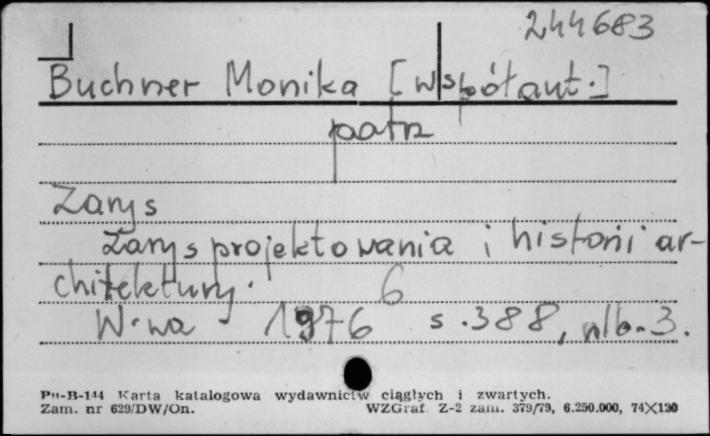 244683
Buchner Monika [współaut.]
patrz
Zarys
Zarys projektowania i historii ar-
chitektury.
6
W-wa - 1976 s.388, nlb. 3.
Pu-B-144 Karta katalogowa wydawnictw ciągłych i zwartych.
Zam. nr 629/DW/On. WZGraf. Z-2 zam. 379/79, 6.250.000, 74×120